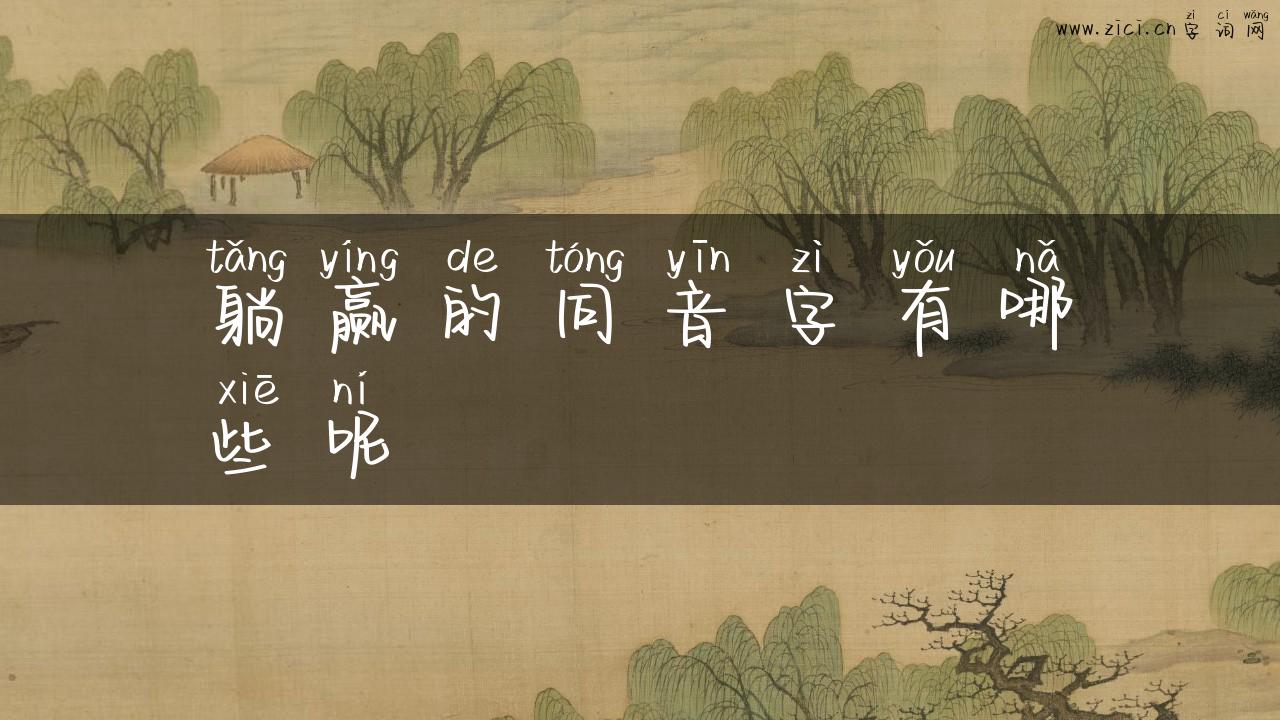 zì cí wǎng
www.zici.cn 字 词 网
tǎng yíng de tóng yīn zì yǒu nǎ
躺 赢 的 同 音 字 有 哪
xiē ní
些 呢